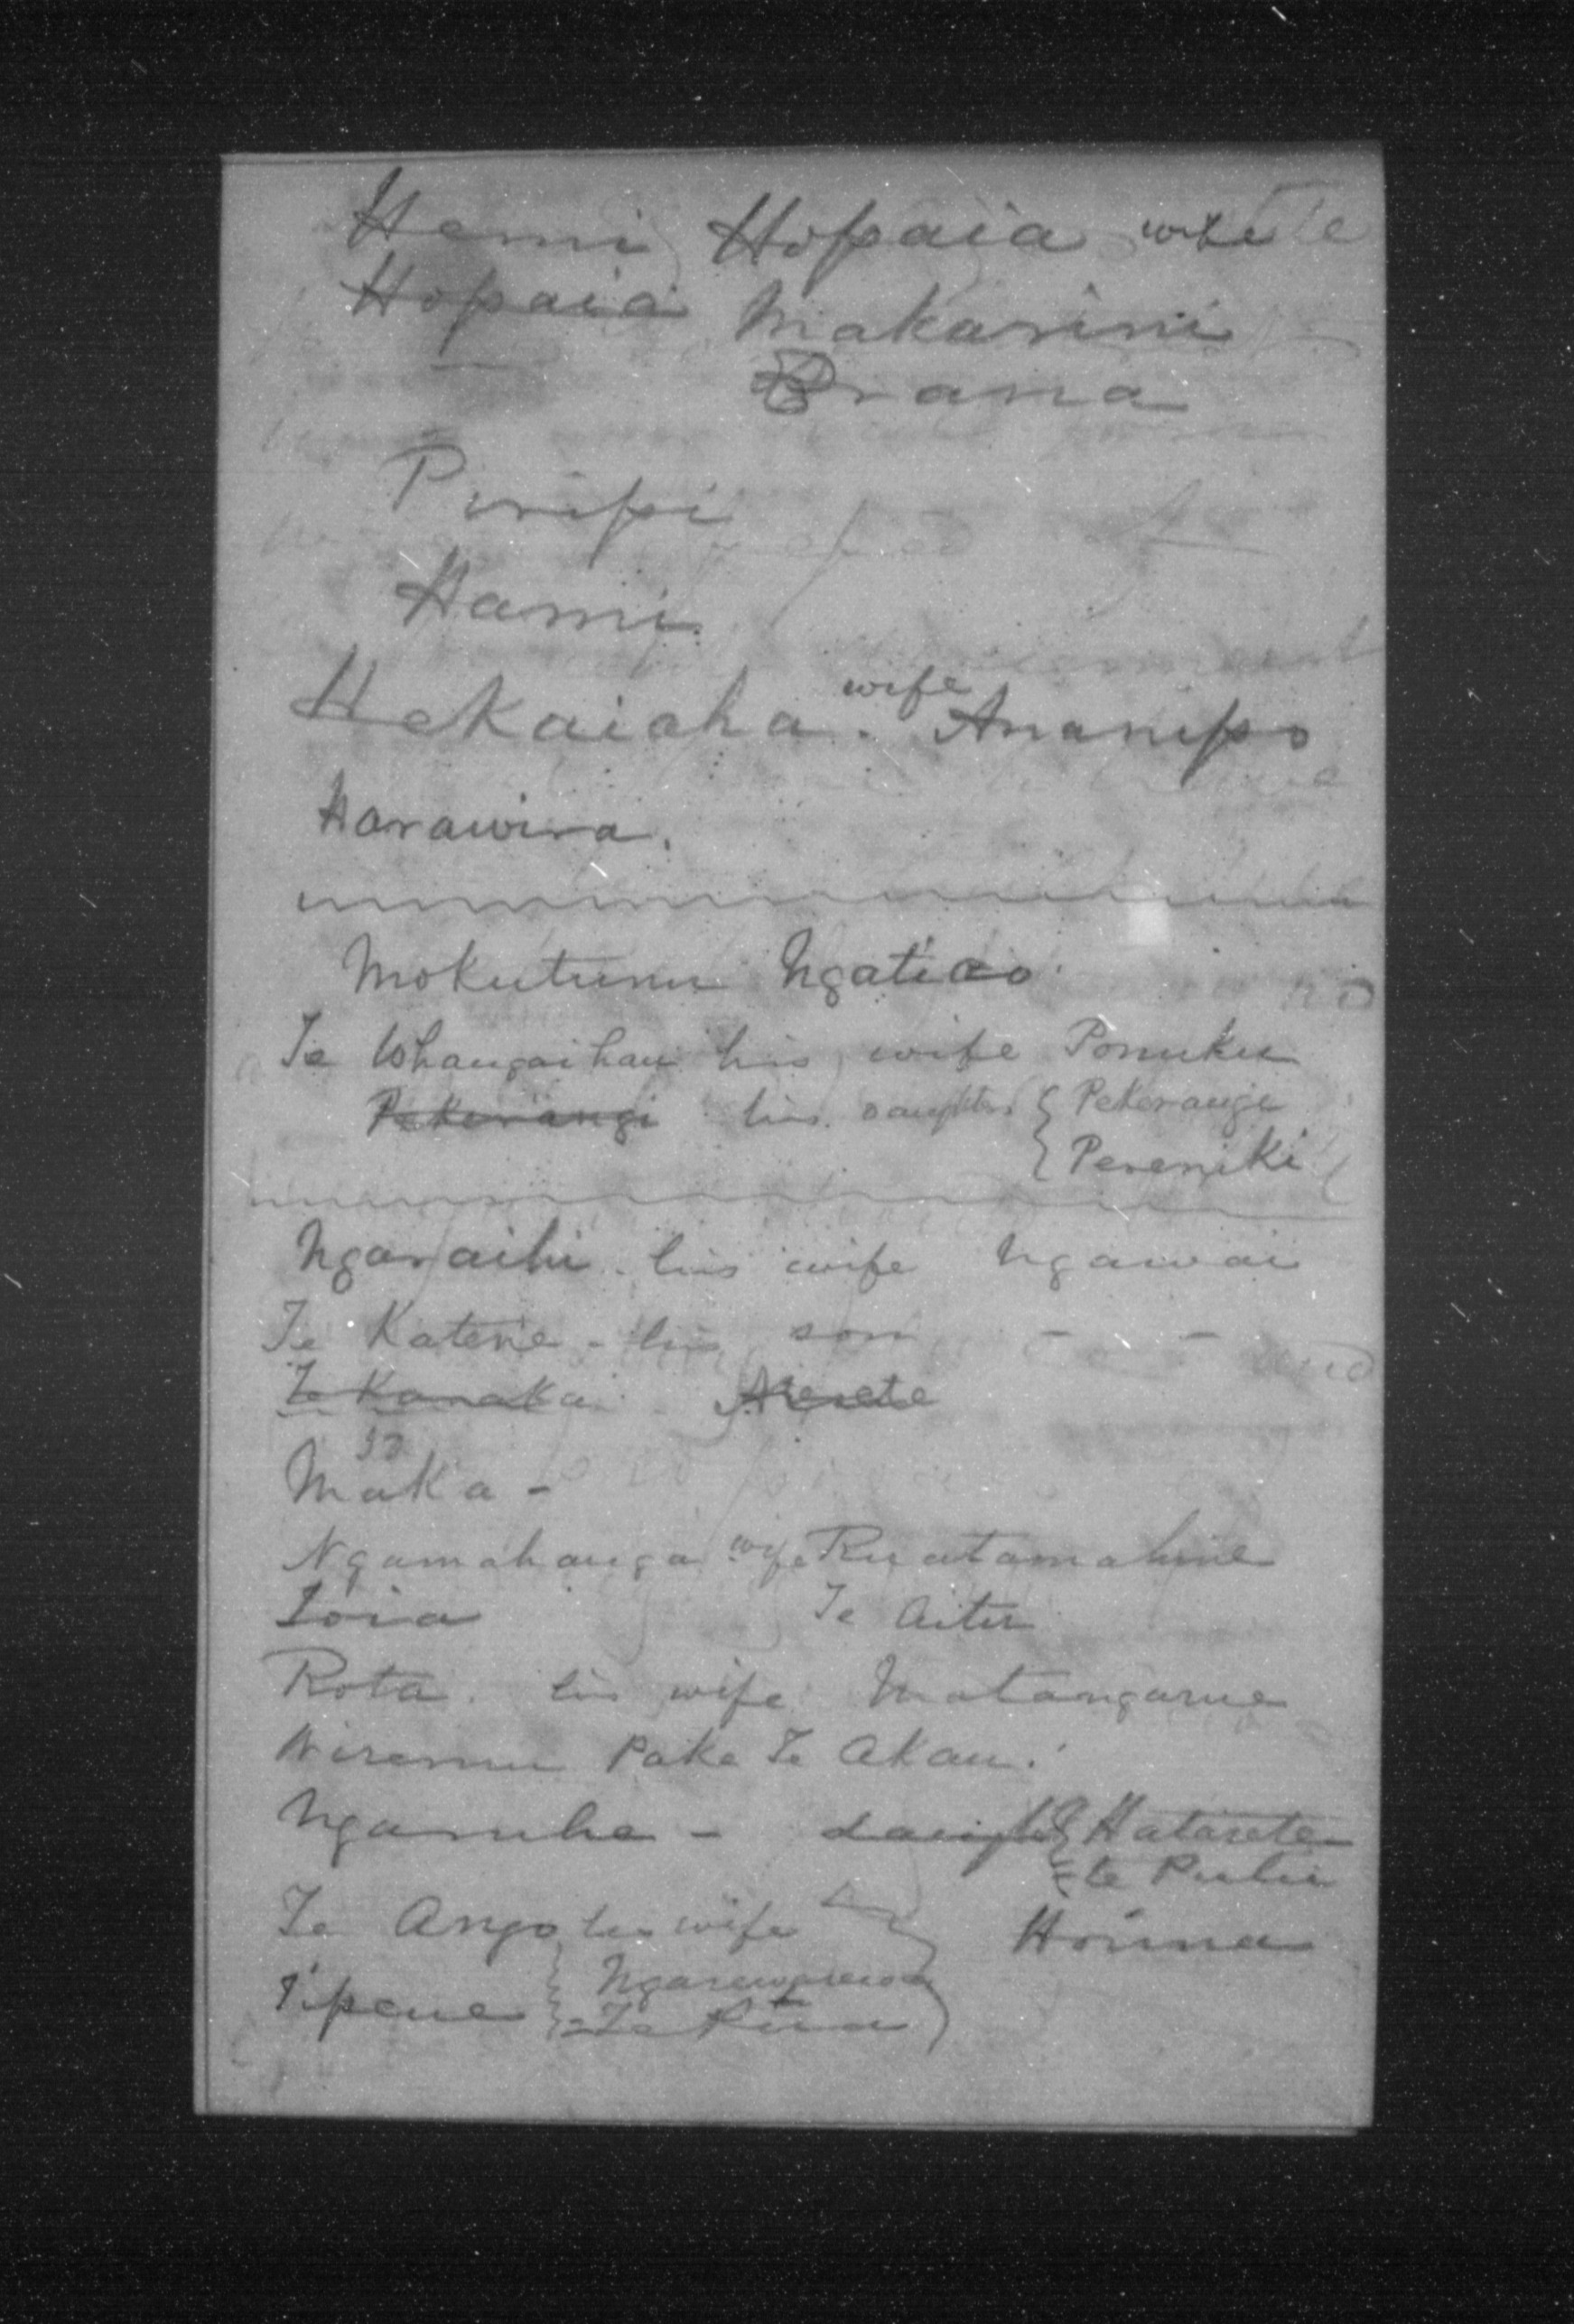 Hemi Hopaia wife
Hopaia Makarini
Erana
Piripi
Hami
Hekaiaha. wife Ananipo
Harawira.
Mokuturu Ngatiao
Te Whangaihau his wife Ponuku
Pekerangi his daughters { Pekerangi
{ Pereniki
Ngaraihi his wife Ngawai
Te Katene - his son - -
Te Kanaka
Maka -
Ngamahanga wife Ruatamahine
Ioia Te Aitu
Rota. his wife Matangarue
Wiremu Pake Te Akau.
Ngaruhe - daughter { Hatarete
te Puhi
Te Ango his wife Horina
Tipene { Ngarewarewa
Te Rua